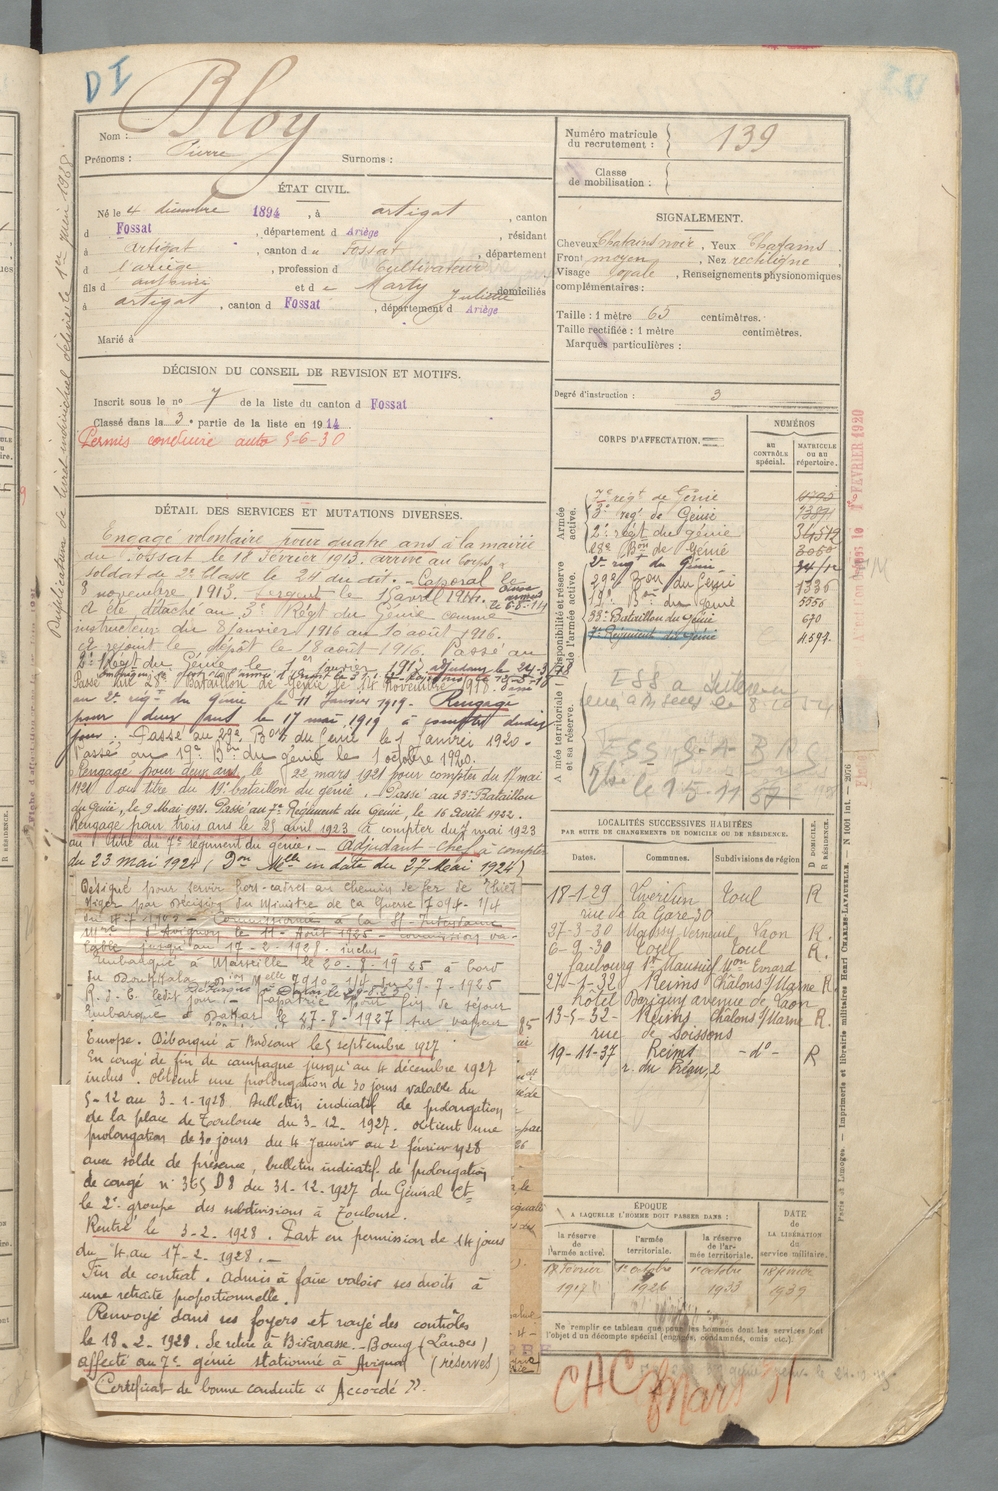 DI
Bloy
Nom :
Prénoms : Pierre Surnoms :
ÉTAT CIVIL.
Né le 4 décembre 1894, à artigat, canton
d Fossat, département d Ariège, résidant
à artigat, canton d u Fossat, département
d l'ariège, profession d cultivateur
fils d antoine et d e Marty Juliette domiciliés
à artigat, canton d Fossat, département d Ariège
Marié à
DÉCISION DU CONSEIL DE REVISION ET MOTIFS.
Inscrit sous le no 7 de la liste du canton d Fossat
Classé dans la 3e partie de la liste en 1914
Permis conduire auto 5-6-30
DÉTAIL DES SERVICES ET MUTATIONS DIVERSES.
Engagé volontaire pour quatre ans à la mairie
du Fossat le 18 Février 1913. arrivé au corps,
soldat de 2e classe le 24 du dit. Caporal le
8 novembre 1913. Sergent le 1 avril 1914.
détaché au 3e Régt du Génie comme
instructeur du 8 janvier 1916 au 10 août 1916.
rejoint le dépôt le 18 août 1916. Passé au
2e Régt du Génie le 1er Janvier 1917 adjudant le
Passé au 28e Bataillon de Génie le 14 Novembre 1918.
au 2e régt du Génie le 11 Janvier 1919. Rengagé
pour deux ans le 17 mai 1919 à compter dudit
jour. Passé au 29e Bon du Génie le 1 Janvier 1920.
Passé au 19e Bon du génie le 1 octobre 1920.
Rengagé pour deux ans, le 22 mars 1921 pour compter du 17 mai
1921 au titre du 19e bataillon du génie. Passé au 33e Bataillon
du Génie, le 9 Mai 1921. Passé au 7e Régiment du Génie, le 16 Août 1922.
Rengagé pour trois ans le 25 avril 1923 à compter du 7 mai 1923
au titre du 7e régiment du génie. Adjudant-chef à compter
du 23 mai 1924 (Don Melle en date du 27 Mai 1924)
Désigné pour servir hors-cadres au chemin de fer de Thiès
Niger par décision du Ministre de la Guerre 7094-1/4
Commissionné à la
d'Avignon le 11 Août 1925 - commission va-
lable jusqu'au 17-2-1928 inclus
Embarqué à Marseille le 20-8-1925 à bord
du Doukkala 7910 29-7-1925
ledit jour. Rapatrié pour fin de séjour
Embarqué à Dakar le 27-8-1927 sur vapeur
Europe. Débarqué à Bordeaux le 5 septembre 1927
En congé de fin de campagne jusqu'au 4 décembre 1927
inclus. Obtient une prolongation de 30 jours valable du
5-12 au 3-1-1928 Bulletin indicatif de prolongation
de la place de Toulouse du 3-12-1927. obtient une
prolongation de 30 jours du 4 Janvier au 2 février 1928
avec solde de présence, bulletin indicatif de prolongation
de congé no 365 D8 du 31-12-1927 du Général Ct
le 2e groupe des subdivisions à Toulouse.
Rentré le 3-2-1928. Part en permission de 14 jours
du 4 au 17-2-1928.
Fin de contrat. Admis à faire valoir ses droits à
une retraite proportionnelle.
Renvoyé dans ses foyers et rayé des contrôles
le 18-2-1928. Se retire à Biscarosse-Bourg (Landes)
affecté au 7e génie stationné à Avignon (réserves)
Certificat de bonne conduite « Accordé ».
Numéro matricule du recrutement : 139
Classe de mobilisation :
SIGNALEMENT.
Cheveux Chatains noir, Yeux Chatains
Front moyen, Nez rectiligne
Visage ovale, Renseignements physionomiques
complémentaires :
Taille : 1 mètre 65 centimètres.
Taille rectifiée : 1 mètre centimètres.
Marques particulières :
Degré d'instruction : 3
CORPS D'AFFECTATION.
NUMÉROS
au CONTRÔLE spécial.
MATRICULE ou au répertoire.
Armée active.
Disponibilité et réserve de l'armée active.
Armée territoriale et sa réserve.
7e régt de Génie
3e régt de Génie
2e régt du génie
28e Bon de Génie 3050
2e régt du Génie
29e Bon du Génie 1336
19e Bon du génie 5556
33e Bataillon du Génie 670
7e Régiment de Génie 4597
LOCALITÉS SUCCESSIVES HABITÉES
PAR SUITE DE CHANGEMENTS DE DOMICILE OU DE RÉSIDENCE.
Dates. Communes. Subdivisions de région
D DOMICILE. R RÉSIDENCE.
18-1-29 Liverdun Toul R
rue de la Gare 30
27-3-30 Laon R.
6-9-30 Toul Toul R.
faubourg St Mansuy
27-1-32 Reims Châlons s/Marne R
hôtel avenue de Laon
13-5-32 Reims Châlons s/Marne R.
rue de Soissons
19-11-37 Reims -do- R
r. du Préau, 2
ÉPOQUE
A LAQUELLE L'HOMME DOIT PASSER DANS :
la réserve de l'armée active.
l'armée territoriale.
la réserve de l'armée territoriale.
DATE de LA LIBÉRATION du service militaire.
18 février 1917
1er octobre 1926
1er octobre 1933
18 février 1939
Ne remplir ce tableau que pour les hommes dont les services font
l'objet d'un décompte spécial (engagés, condamnés, omis etc.).
CHC Mars 31
Duplication de livret individuel délivré le 1er juin 1928
1er FÉVRIER 1920
Paris et Limoges. — Imprimerie et librairie militaires Henri CHARLES-LAVAUZELLE. — N 1001 Int. — 2076